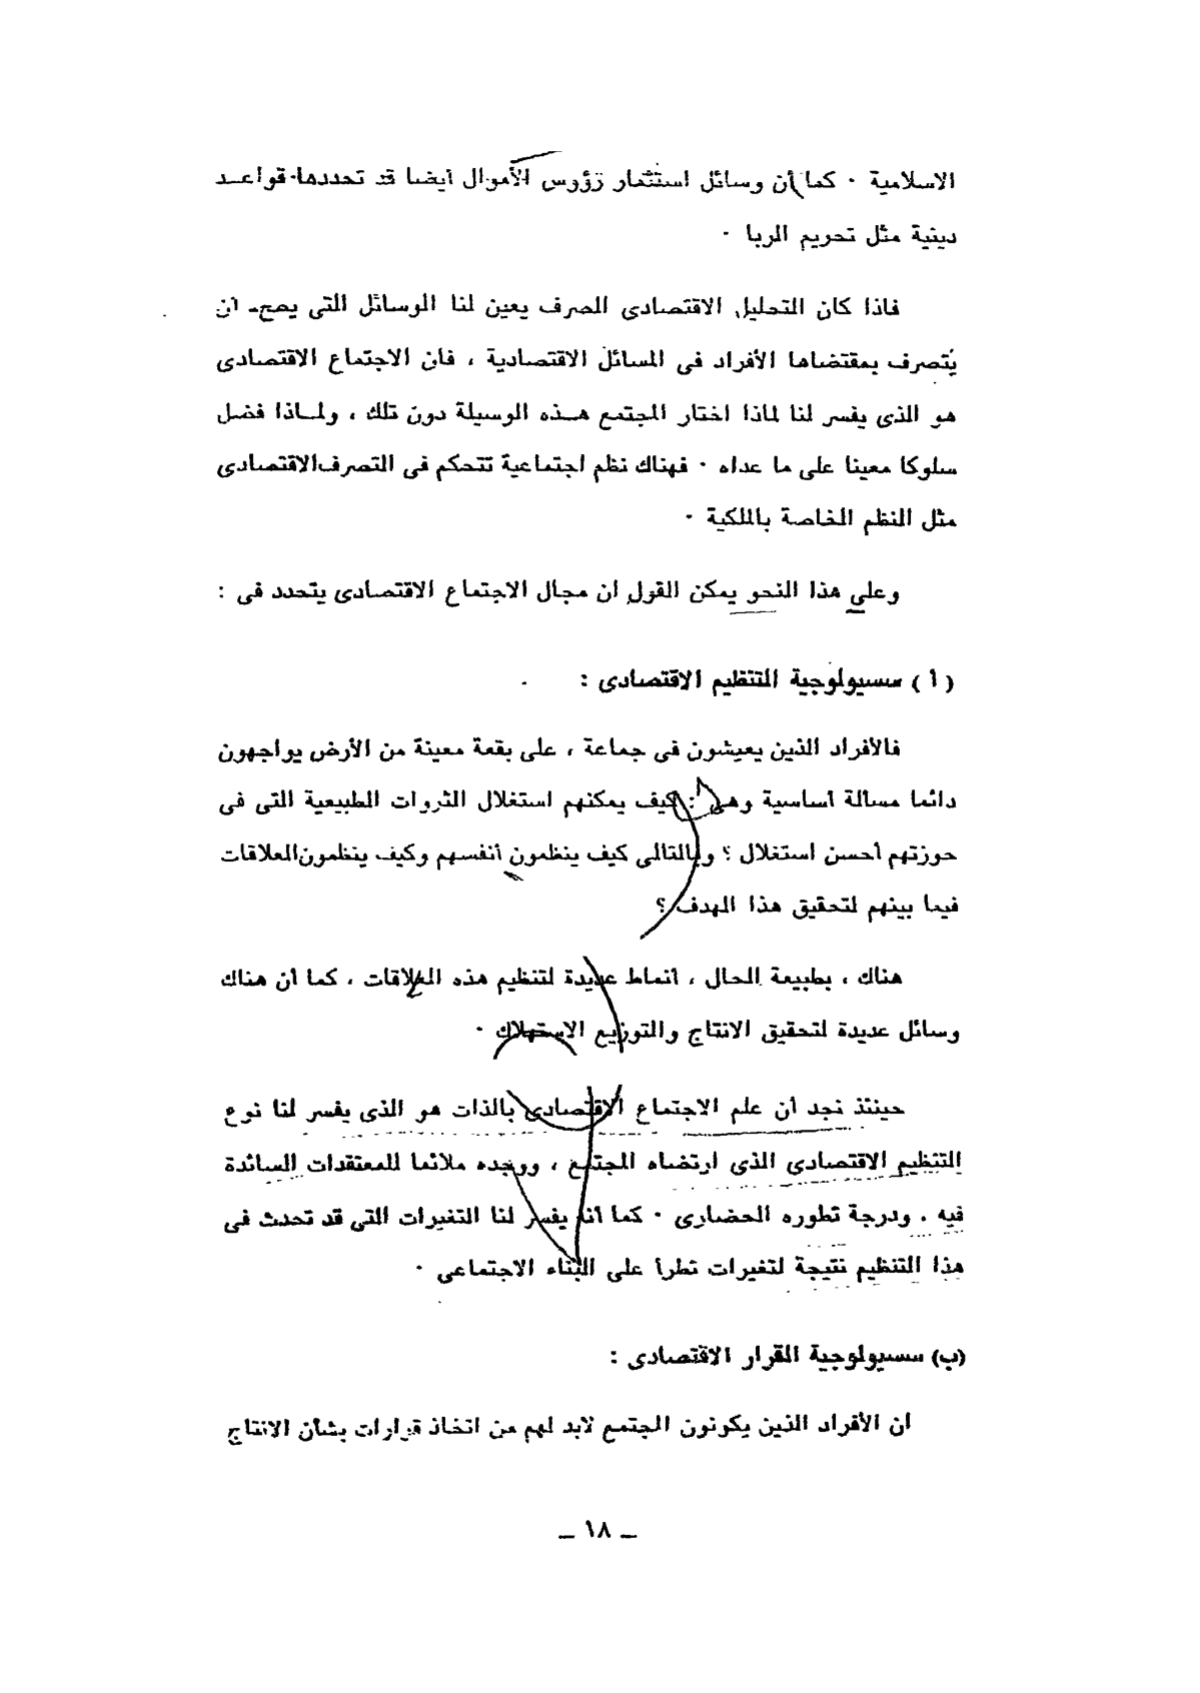 الاسلامية ٠ كما أن وسائل استثمار رؤوس الأموال أيضا قد تحددها قواعــد
دينية مثل تحريم الربا ٠
فاذا كان التحليل الاقتصادى الصرف يعين لنا الوسائل التى يصح أن
يتصرف بمقتضاها الأفراد فى المسائل الاقتصادية ، فان الاجتماع الاقتصادى
هو الذى يفسر لنا لماذا اختار المجتمع هــذه الوسيلة دون تلك ، ولمــاذا فضل
سلوكا معينا على ما عداه ٠ فهناك نظم اجتماعية تتحكم فى التصرف الاقتصادى
مثل النظم الخاصة بالملكية ٠
وعلى هذا النحو يمكن القول ان مجال الاجتماع الاقتصادى يتحدد فى :
( أ ) سسيولوجية التنظيم الاقتصادى :
فالأفراد الذين يعيشون فى جماعة ، على بقعة معينة من الأرض يواجهون
دائما مسألة أساسية وهى : كيف يمكنهم استغلال الثروات الطبيعية التى فى
حوزتهم أحسن استغلال ؟ وبالتالى كيف ينظمون أنفسهم وكيف ينظمون العلاقات
فيما بينهم لتحقيق هذا الهدف ؟
هناك ، بطبيعة الحال ، أنماط عديدة لتنظيم هذه العلاقات ، كما أن هناك
وسائل عديدة لتحقيق الانتاج والتوزيع الاستهلاك ٠
حينئذ نجد أن علم الاجتماع الاقتصادى بالذات هو الذى يفسر لنا نوع
التنظيم الاقتصادى الذى ارتضاه المجتمع ، ووجده ملائما للمعتقدات السائدة
فيه ، ودرجة تطوره الحضارى ٠ كما أنه يفسر لنا التغيرات التى قد تحدث فى
هذا التنظيم نتيجة لتغيرات تطرأ على البناء الاجتماعى ٠
(ب) سسيولوجية القرار الاقتصادى :
ان الأفراد الذين يكونون المجتمع لابد لهم من اتخاذ قرارات بشأن الانتاج
ــ ١٨ ــ